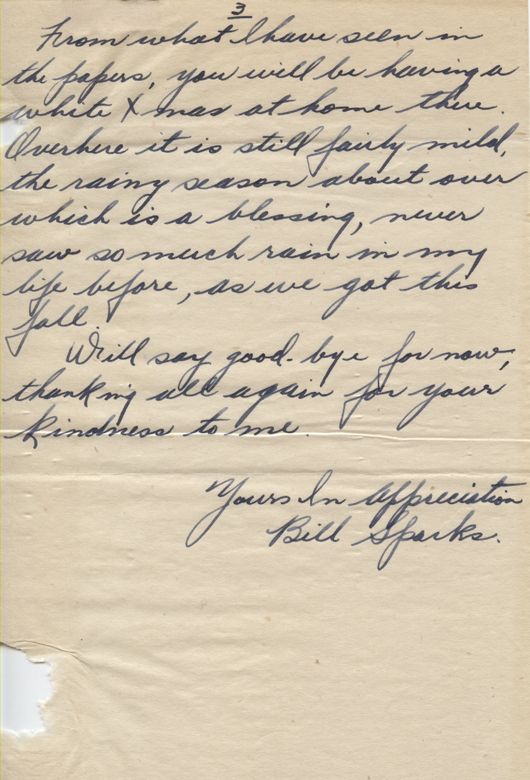 3
From what I have seen in
the papers, you will be having a
white X mas at home there.
Overhere it is still fairly mild,
the rainy season about over
which is a blessing, never
saw so much rain in my
life before, as we got this
fall.
Will say good-bye for now,
thanking all again for your
kindness to me.
Yours In Appreciation
Bill Sparks.